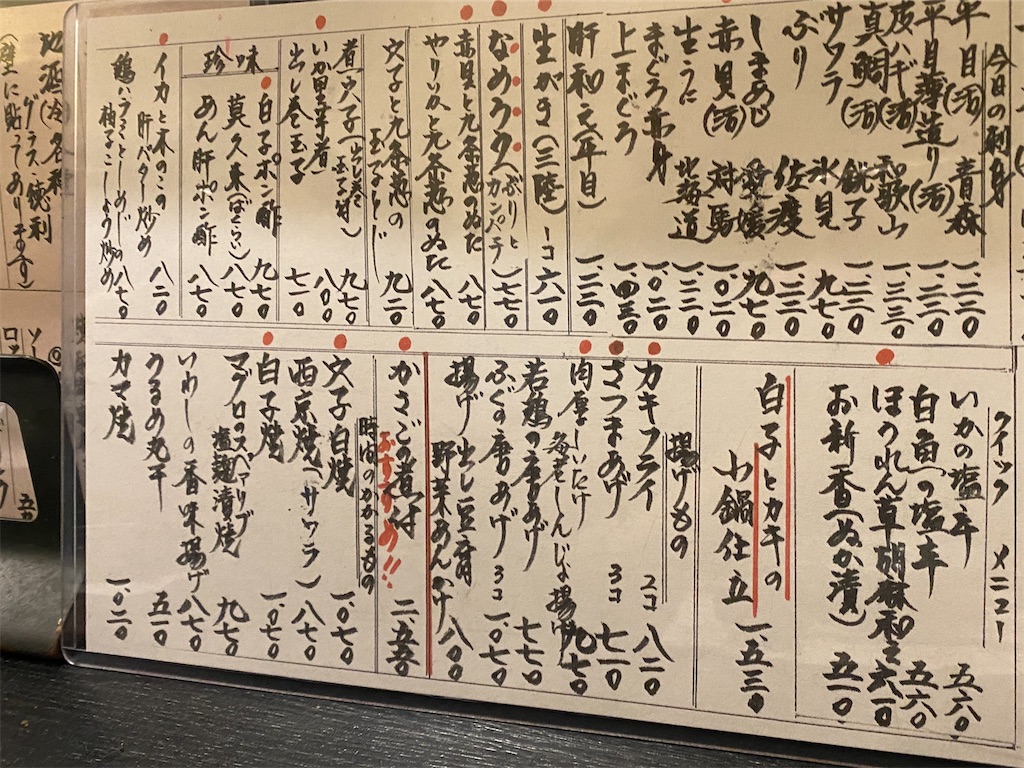 今日の刺身
平目(活) 青森 一、二二〇
平目薄造り(活) 一、三三〇
皮ハギ(活) 和歌山 一、三三〇
真鯛(活) 銚子 一、二二〇
サワラ 氷見 九七〇
ぶり 佐渡 一、二二〇
しまあじ 愛媛 九七〇
赤貝(活) 対馬 一、〇二〇
生うに 北海道 一、二二〇
まぐろ赤身 一、〇二〇
上まぐろ 一、四三〇
肝和え(平目) 一、二二〇
生がき(三陸) 一コ 六一〇
なめろう(ぶりとカンパチ) 七七〇
赤貝と九条葱のぬた 八七〇
やりいかと九条葱のぬた 八七〇
穴子と九条葱の
玉子とじ 九二〇
煮穴子(出し巻き玉子付) 九七〇
いか里芋煮 八〇〇
出し巻玉子 七一〇
珍味
白子ポン酢 九七〇
莫久来(ばくらい) 八七〇
あん肝ポン酢 八七〇
イカと木のこの
肝バター炒め 八二〇
鶏ハラミとしめじの
柚子こしょう炒め 八七〇
クイック メニュー
いかの塩辛 五六〇
白魚の塩辛 五六〇
ほうれん草胡麻和え 六一〇
お新香(ぬか漬) 五一〇
白子とカキの
小鍋仕立 一、五三〇
揚げもの
カキフライ 2コ 八二〇
さつまあげ 3コ 七一〇
肉厚しいたけ
海老しんじょ揚げ 九七〇
若鶏の唐あげ 七七〇
ふぐの唐あげ 3コ 一、〇七〇
揚げ出し豆腐
野菜あんかけ 八〇〇
時間のかかるもの
おすすめ!!
かさごの煮付 二、五五〇
穴子白焼 一、〇七〇
西京焼(サワラ) 八七〇
白子焼 一、〇七〇
マグロのスペアリブ
塩麹漬焼 九七〇
いわしの香味揚げ 八七〇
うるめ丸干 五一〇
カマ焼 一、〇二〇
グラス・徳利
(壁に貼ってあります)